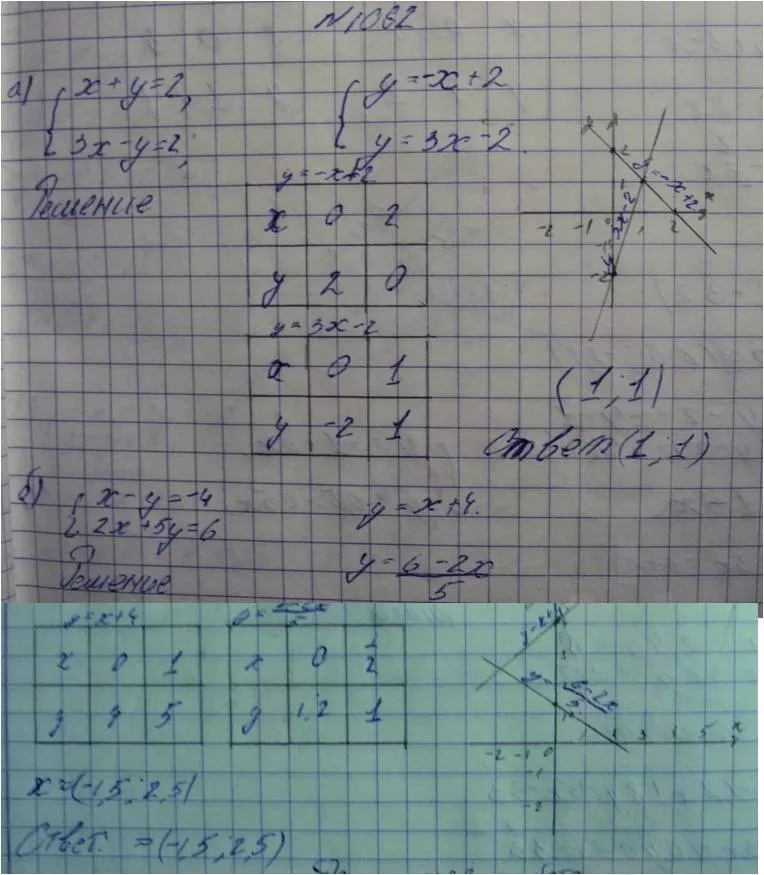 №1062
а) { x + y = 2,
3x - y = 2;
{ y = -x + 2
y = 3x - 2.
Решение
y = -x + 2
x 0 2
y 2 0
y = 3x - 2
x 0 1
y -2 1
y = -x + 2
y = 3x - 2
-2 -1 2
(1; 1)
Ответ (1; 1)
б) { x - y = -4
2x + 5y = 6
y = x + 4.
y = 6 - 2x / 5
Решение
y = x + 4
x 0 1
y 4 5
x 0 1/2
y 1,2 1
y = x + 4
y = 6 - 2x / 5
-2 -1 0
-1
-2
x = (-1,5; 2,5)
Ответ. = (-1,5; 2,5)